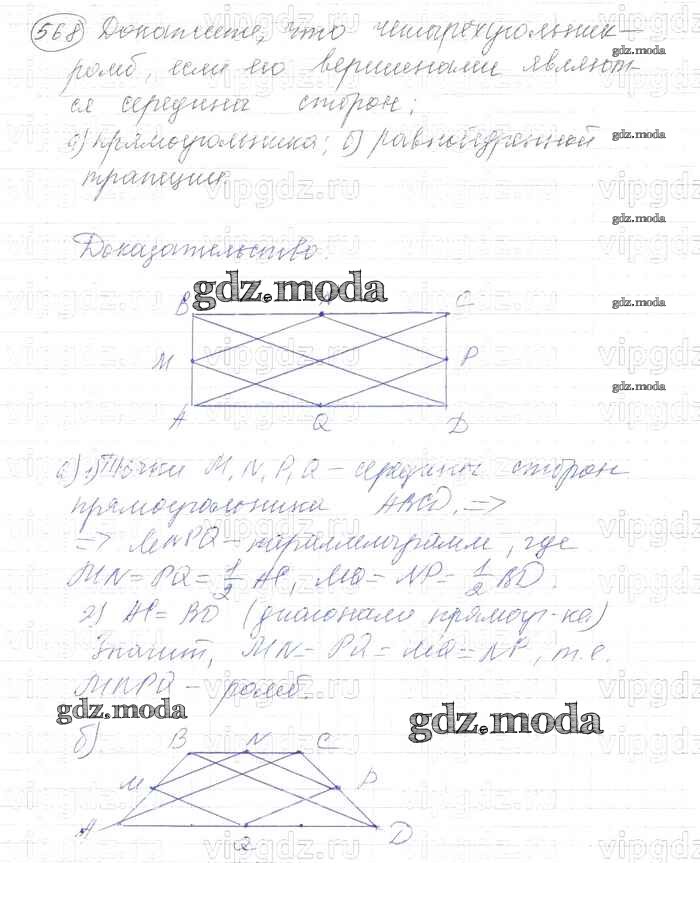 568 Докажите, что четырехугольник-
ромб, если его вершинами являют-
ся середина сторон;
а) прямоугольника; б) равнобедренной
трапеции.
Доказательство.
B N C
M P
A Q D
а) 1) Точки M, N, P, Q - середины сторон
прямоугольника ABCD, =>
=> MNPQ - параллелограмм, где
MN = PQ = 1/2 AC, MQ = NP = 1/2 BD.
2) AC = BD (диагонали прямоуг-ка)
Значит, MN = PQ = MQ = NP, т.е.
MNPQ - ромб.
б)
B N C
M P
A Q D
gdz.moda
gdz.moda
gdz.moda
gdz.moda
gdz.moda
gdz.moda
gdz.moda
gdz.moda
vipgdz.ru